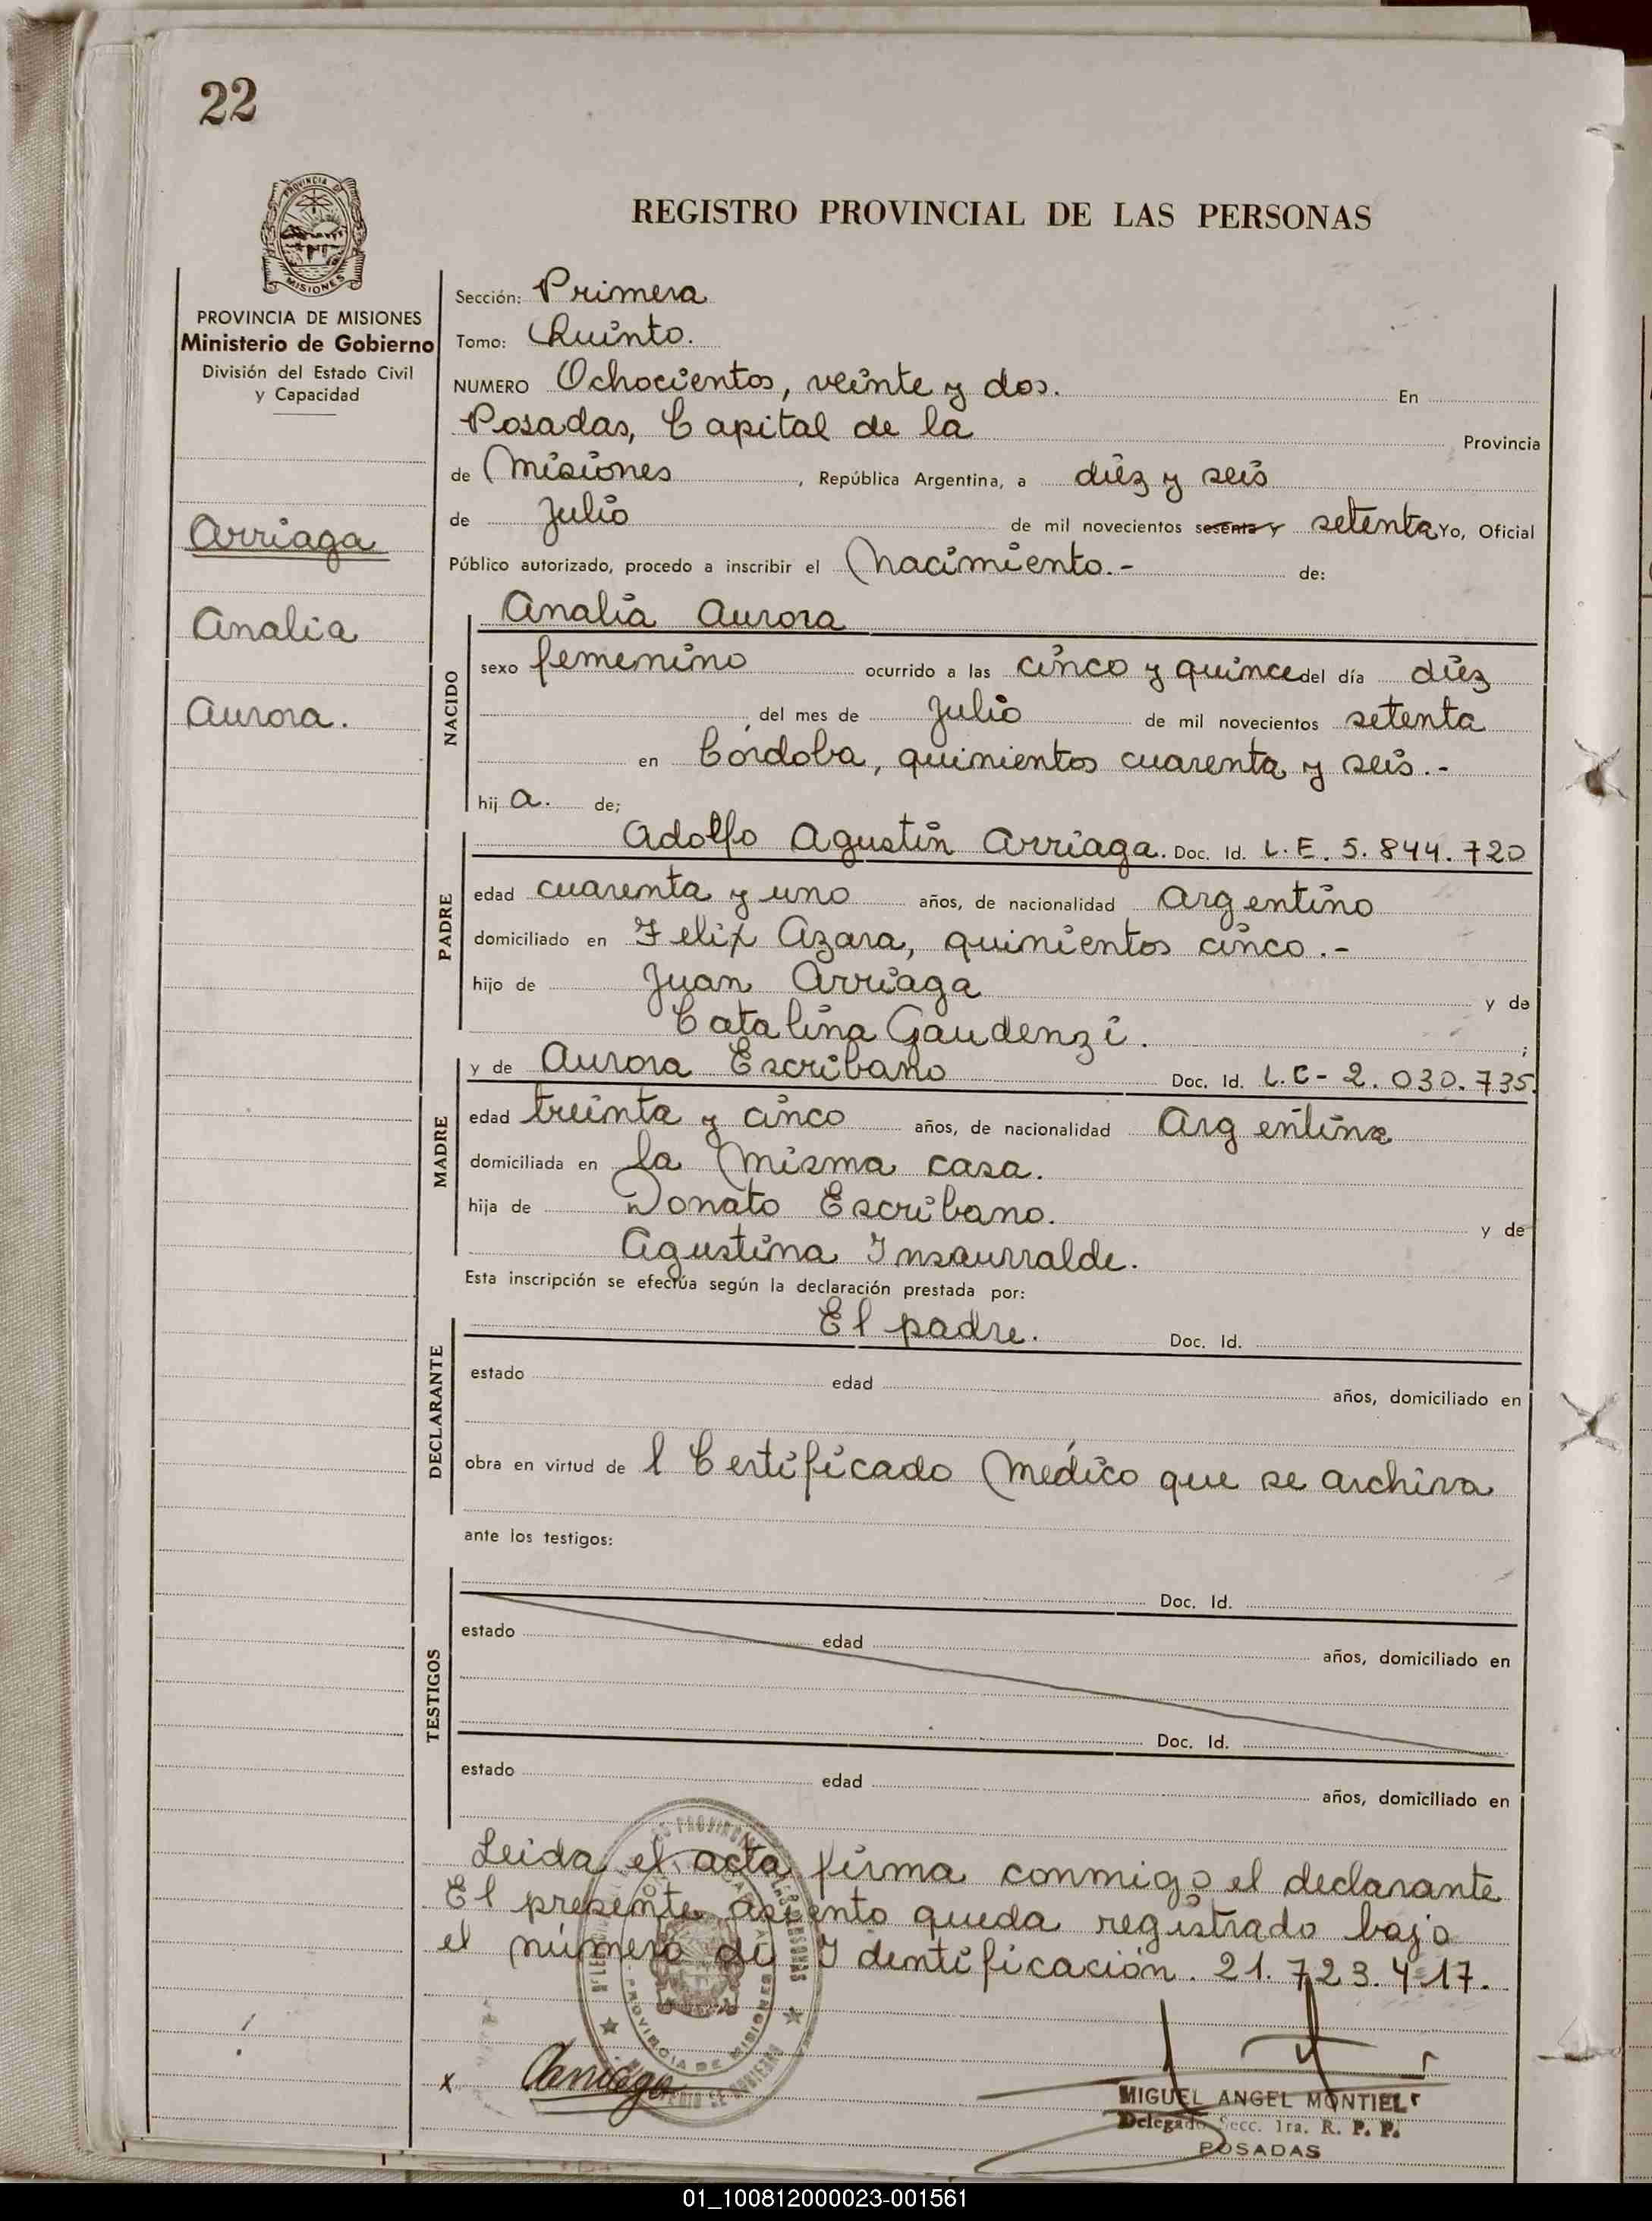 22
PROVINCIA DE
MISIONES
REGISTRO PROVINCIAL DE LAS PERSONAS
PROVINCIA DE MISIONES
Ministerio de Gobierno
División del Estado Civil
y Capacidad
Arriaga
Analia
Aurora.
Sección: Primera
Tomo: Quinto.
NUMERO Ochocientos, veinte y dos. En
Posadas, Capital de la Provincia
de Misiones, República Argentina, a diez y seis
de Julio de mil novecientos sesenta y setenta Yo, Oficial
Público autorizado, procedo a inscribir el Nacimiento.- de:
NACIDO
Analia Aurora
sexo femenino ocurrido a las cinco y quince del día diez
del mes de Julio de mil novecientos setenta
en Córdoba, quinientos cuarenta y seis.-
hij a. de;
PADRE
Adolfo Agustin Arriaga. Doc. Id. L.E. 5.844.720
edad cuarenta y uno años, de nacionalidad Argentino
domiciliado en Felix Azara, quinientos cinco.-
hijo de Juan Arriaga y de
Catalina Gaudenzi. ;
MADRE
y de Aurora Escribano Doc. Id. L.C- 2.030.735.
edad treinta y cinco años, de nacionalidad Argentina
domiciliada en la Misma casa.
hija de Donato Escribano. y de
Agustina Insaurralde.
Esta inscripción se efectúa según la declaración prestada por:
DECLARANTE
El padre. Doc. Id.
estado edad años, domiciliado en
obra en virtud de l Certificado Médico que se archiva
ante los testigos:
TESTIGOS
Doc. Id.
estado edad años, domiciliado en
Doc. Id.
estado edad años, domiciliado en
Leida el acta firma conmigo el declarante
El presente asiento queda registrado bajo
el número de Identificación. 21.723.417.
PROVINCIA DE MISIONES
x Arriaga
MIGUEL ANGEL MONTIEL
Delegado Secc. 1ra. R. P. P.
POSADAS
01_100812000023-001561